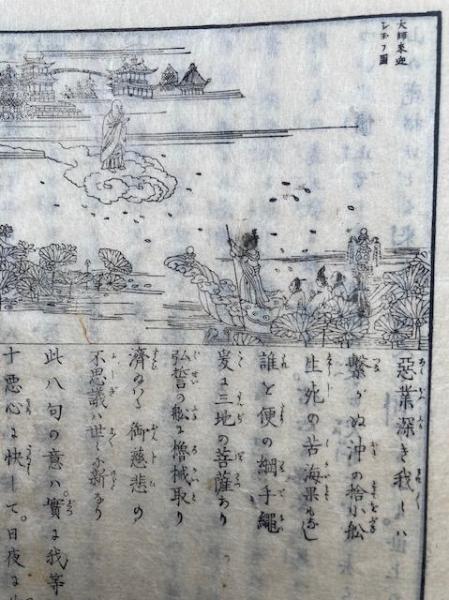 大師来迎
シ玉フ圖
惡業深き我〳〵ハ
繋がぬ沖の捨小舩
生死の苦海果もなし
誰を便の綱手繩
爰に三地の菩薩あり
弘誓の船に櫓械取り
濟るハ御慈悲の
不思議ハ世々に新なり
此八句の意ハ。實に我等
十惡心に快して。日夜に